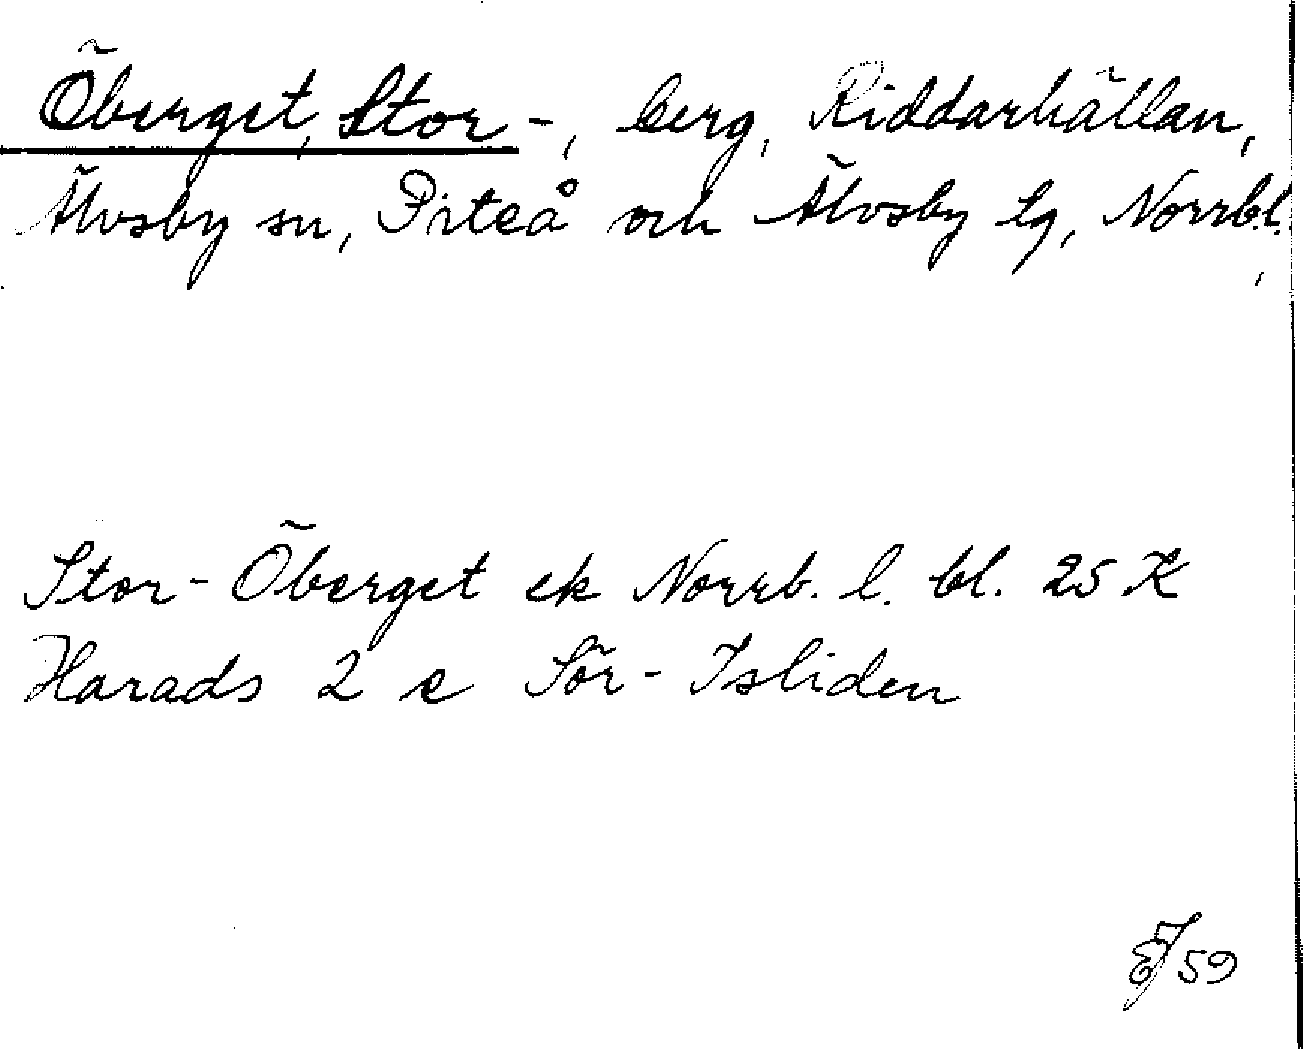 Öberget, Stor-, berg, Riddarhällan,
Älvsby sn, Piteå och Älvsby tg, Norrb.l.
Stor-Öberget ek Norrb. l. bl. 25 K
Harads 2 c Sör-Isliden
EJ 59